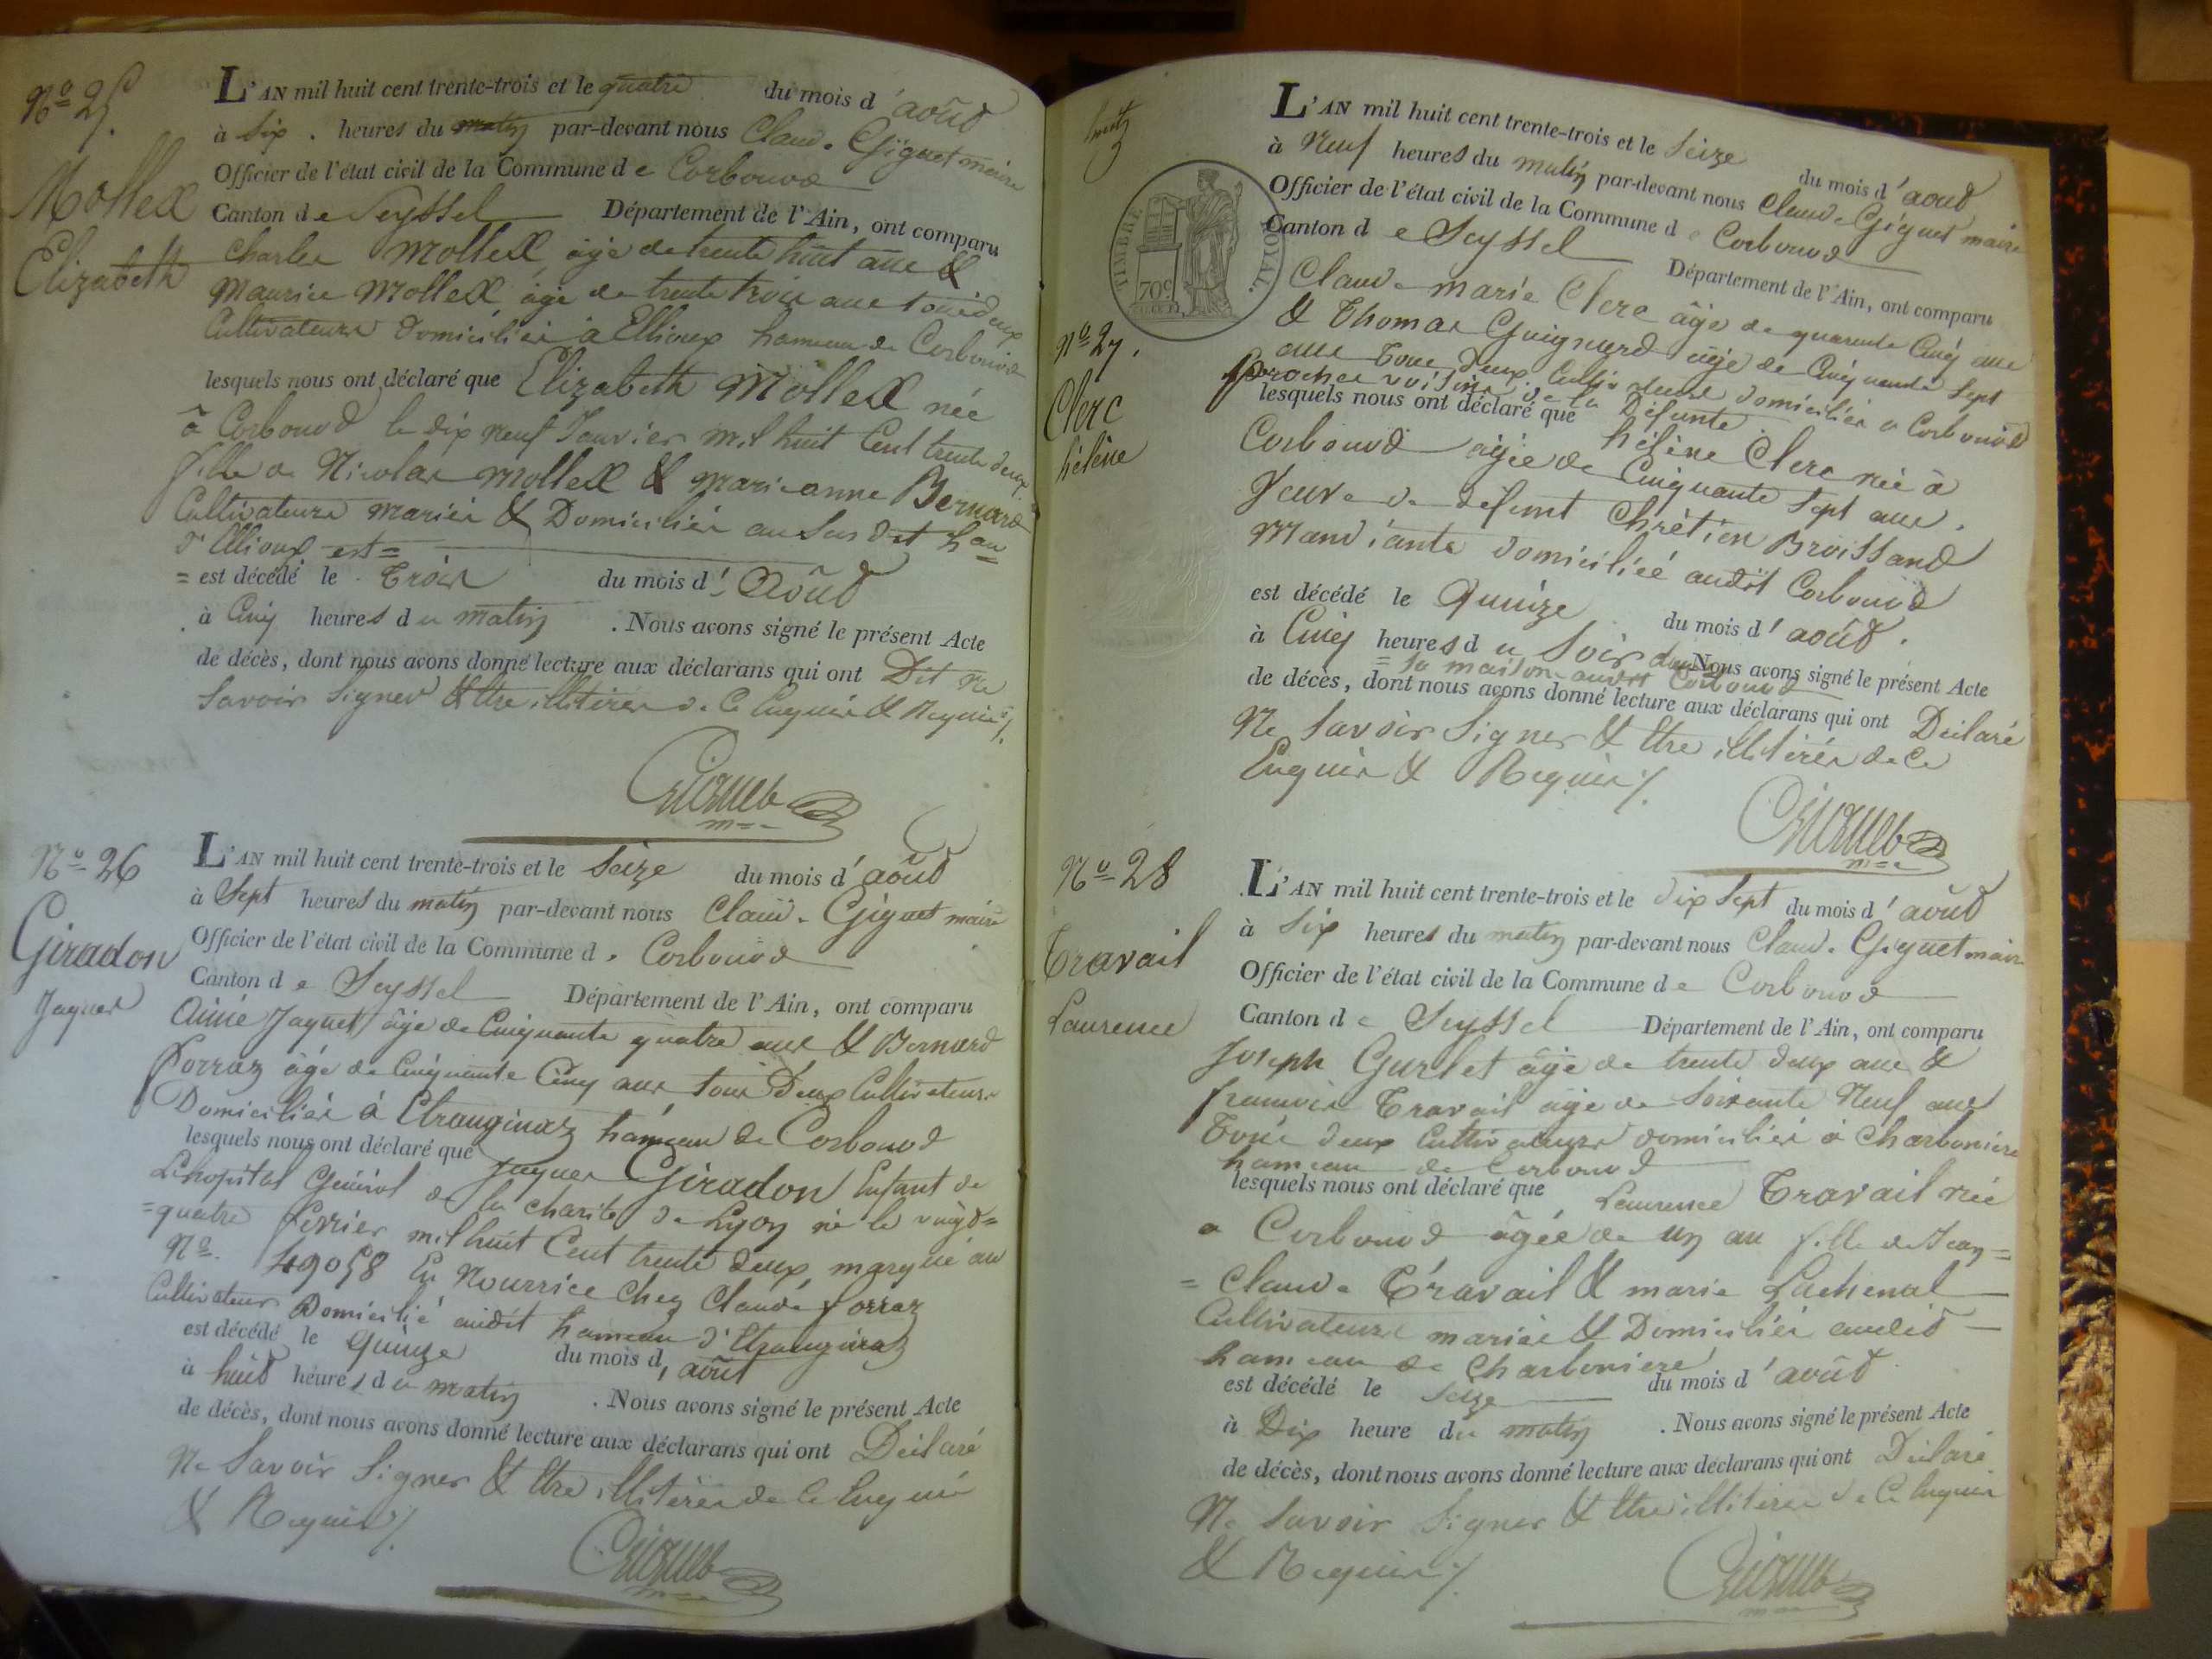 Nº 25
Mollex
Elizabeth
L'AN mil huit cent trente-trois et le quatre du mois d'août
à Six heures du matin par-devant nous Claude Giguet maire
Officier de l'état civil de la Commune de Corbonod
Canton de Seyssel Département de l'Ain, ont comparu
Charles Mollex âgé de trente huit ans &
Maurice Mollex âgé de trente trois ans tous deux
Cultivateurs domiciliés à Ellioux hameau de Corbonod
lesquels nous ont déclaré que Elizabeth Mollex née
à Corbonod le dix neuf Janvier mil huit Cent trente deux
fille de Nicolas Mollex & Marieanne Bernard
Cultivateurs mariés & Domiciliés au Sus dit hau
d'Ellioux est=
= est décédé le Trois du mois d'Août
à Cinq heures du matin . Nous avons signé le présent Acte
de décès, dont nous avons donné lecture aux déclarans qui ont Dit ne
Savoir Signer & Etre illitérés de Ce Enquis & Requis /.
Giguet
m==
Nº 26
Giradon
Jaques
L'AN mil huit cent trente-trois et le Seize du mois d'août
à Sept heures du matin par-devant nous Claude Giguet maire
Officier de l'état civil de la Commune de Corbonod
Canton de Seyssel Département de l'Ain, ont comparu
Aimé Jaquet âgé de Cinquante quatre ans & Bernard
Forraz âgé de Cinquante Cinq ans tous Deux Cultivateurs
Domiciliés à Etranginaz hameau de Corbonod
lesquels nous ont déclaré que Jaques Giradon Enfant de
Lhopital Général de la Charité de Lyon né le vingt=
=quatre fevrier mil huit Cent trente deux marqué au
Nº 49058 En Nourrice Chez Claude forraz
Cultivateur Domicilié audit hameau d'Etranginaz
est décédé le Quinze du mois d, août
à huit heures du matin . Nous avons signé le présent Acte
de décès, dont nous avons donné lecture aux déclarans qui ont Déclaré
Ne Savoir Signer & Etre illitérés de Ce Enquis
& Requis /.
Giguet
m==
TIMBRE ROYAL.
70c
Nº 27.
Clerc
hélène
L'AN mil huit cent trente-trois et le Seize du mois d'août
à Neuf heures du matin par-devant nous Claude Giguet maire
Officier de l'état civil de la Commune de Corbonod
Canton de Seyssel Département de l'Ain, ont comparu
Claude marie Clerc âgé de quarante Cinq ans
& Thomas Guignard âgé de Cinquante Sept
ans Tous Deux Cultivateurs domiciliés a Corbonod
proches voisins de la Défunte
lesquels nous ont déclaré que hélène Clerc née à
Corbonod âgée de Cinquante Sept ans.
Veuve de défunt Chrétien Broissand
Mandiante domiciliée audit Corbonod
est décédé le Quinze du mois d'août.
à Cinq heures du Soir dans Nous avons signé le présent Acte
= Sa maison audit Corbonod
de décès, dont nous avons donné lecture aux déclarans qui ont Déclaré
Ne Savoir Signer & Etre illitérés de Ce
Enquis & Requis /.
Giguet
m==
Nº 28
Travail
Laurence
L'AN mil huit cent trente-trois et le dix Sept du mois d'août
à Six heures du matin par-devant nous Claude Giguet maire
Officier de l'état civil de la Commune de Corbonod
Canton de Seyssel Département de l'Ain, ont comparu
Joseph Gurlet âgé de trente deux ans &
francois Travail âgé de Soixante Neuf ans
Tous deux Cultivateurs domiciliés à Charboniere
hameau de Corbonod
lesquels nous ont déclaré que Laurence Travail née
a Corbonod âgée de un an fille de Jean=
= Claude Travail & marie Lachenal
Cultivateurs mariés & Domiciliés audit
hameau de Charboniere
est décédé le Seize du mois d'août
à Dix heure du matin . Nous avons signé le présent Acte
de décès, dont nous avons donné lecture aux déclarans qui ont Déclaré
Ne Savoir Signer & Etre illitérés de Ce Enquis
& Requis /.
Giguet